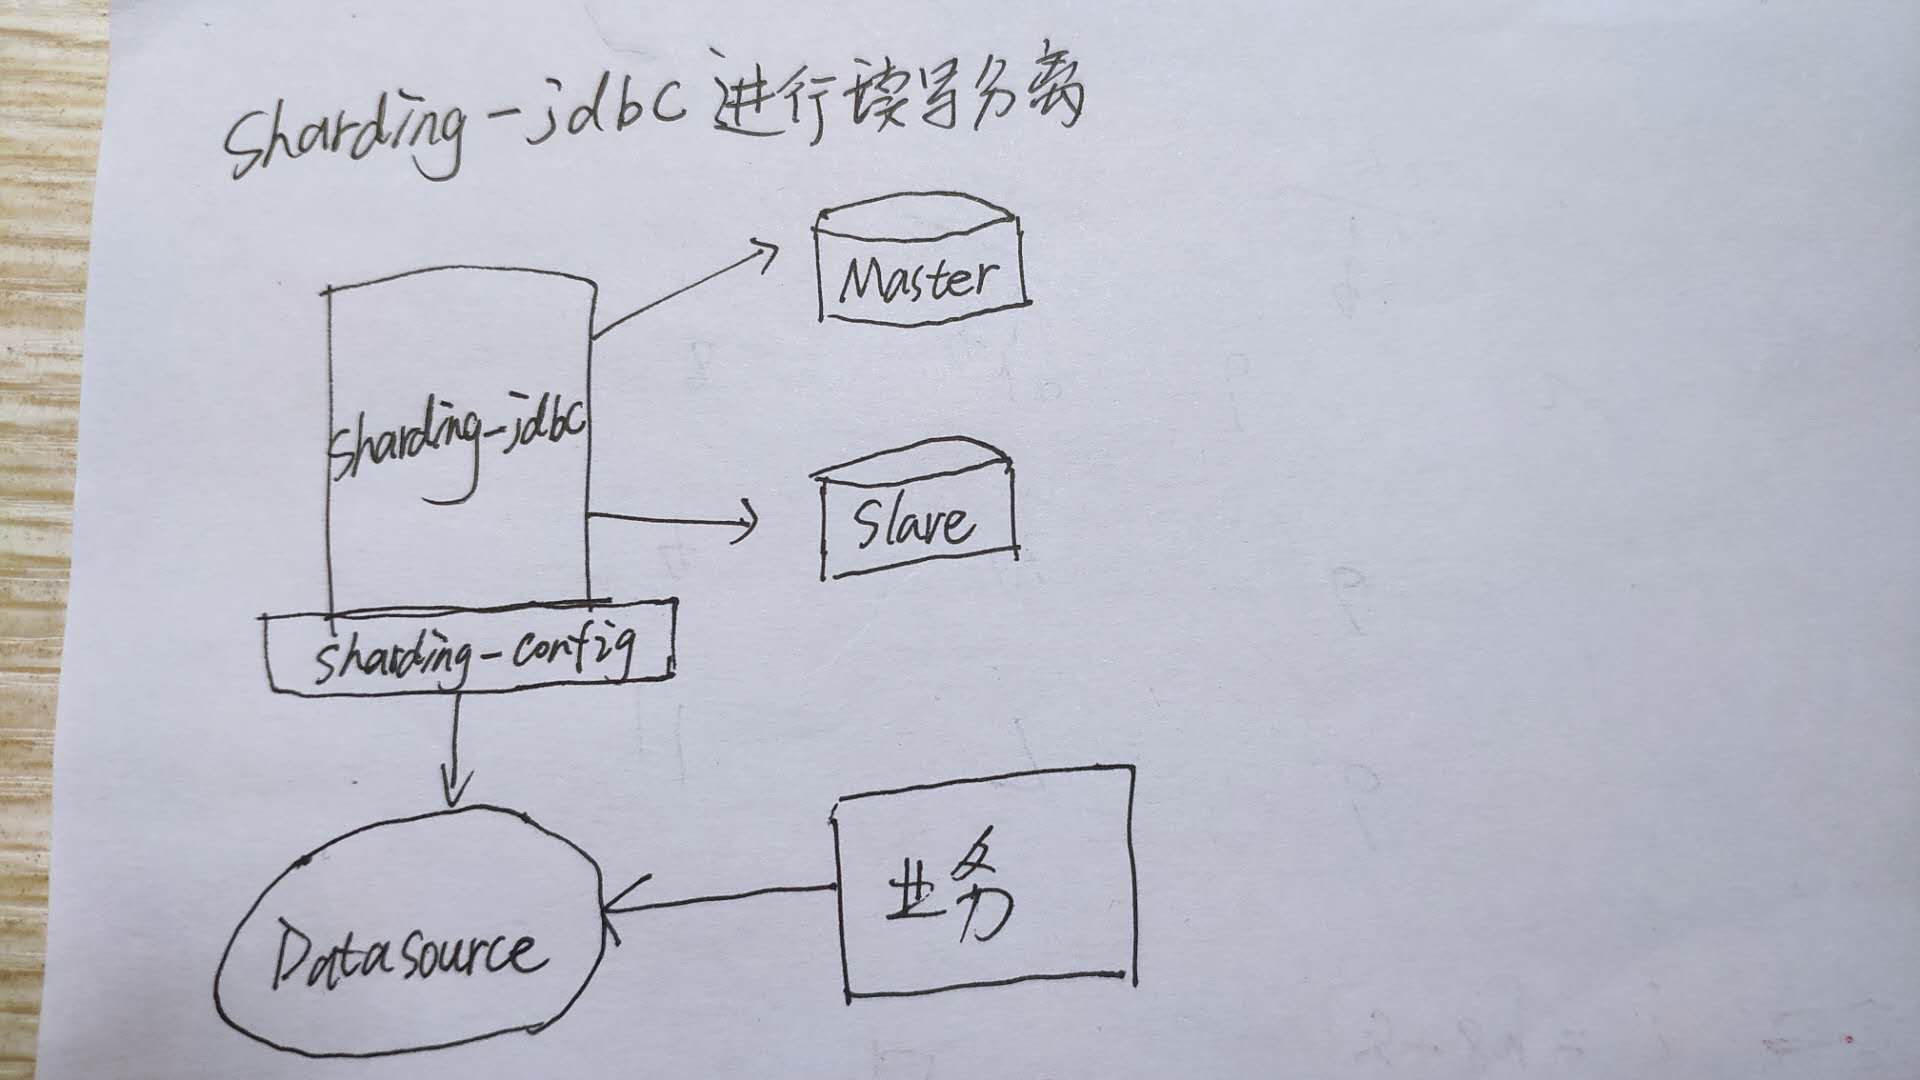 Sharding-jdbc 进行读写分离
Master
Sharding-jdbc
Slave
Sharding-config
业务
Datasource